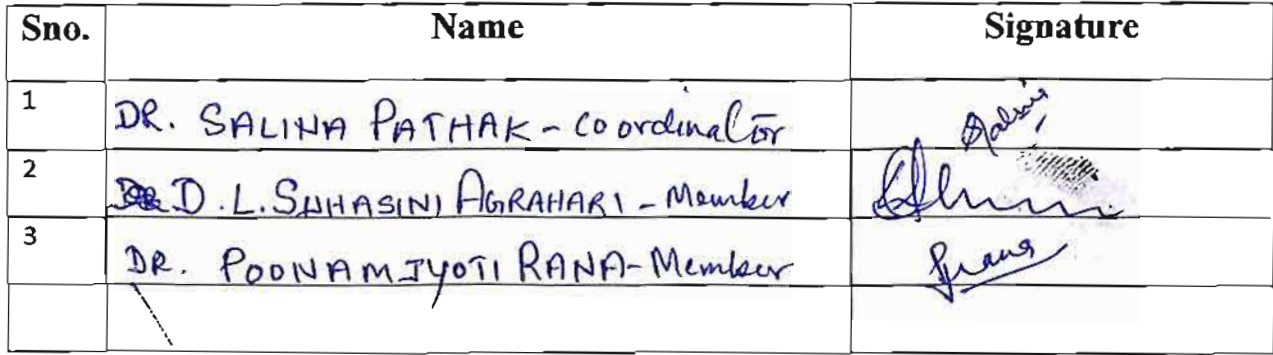 Sno. Name Signature
1 DR. SALINA PATHAK - Coordinator
2 D. L. SUHASINI AGRAHARI - Member
3 DR. POONAM JYOTI RANA - Member